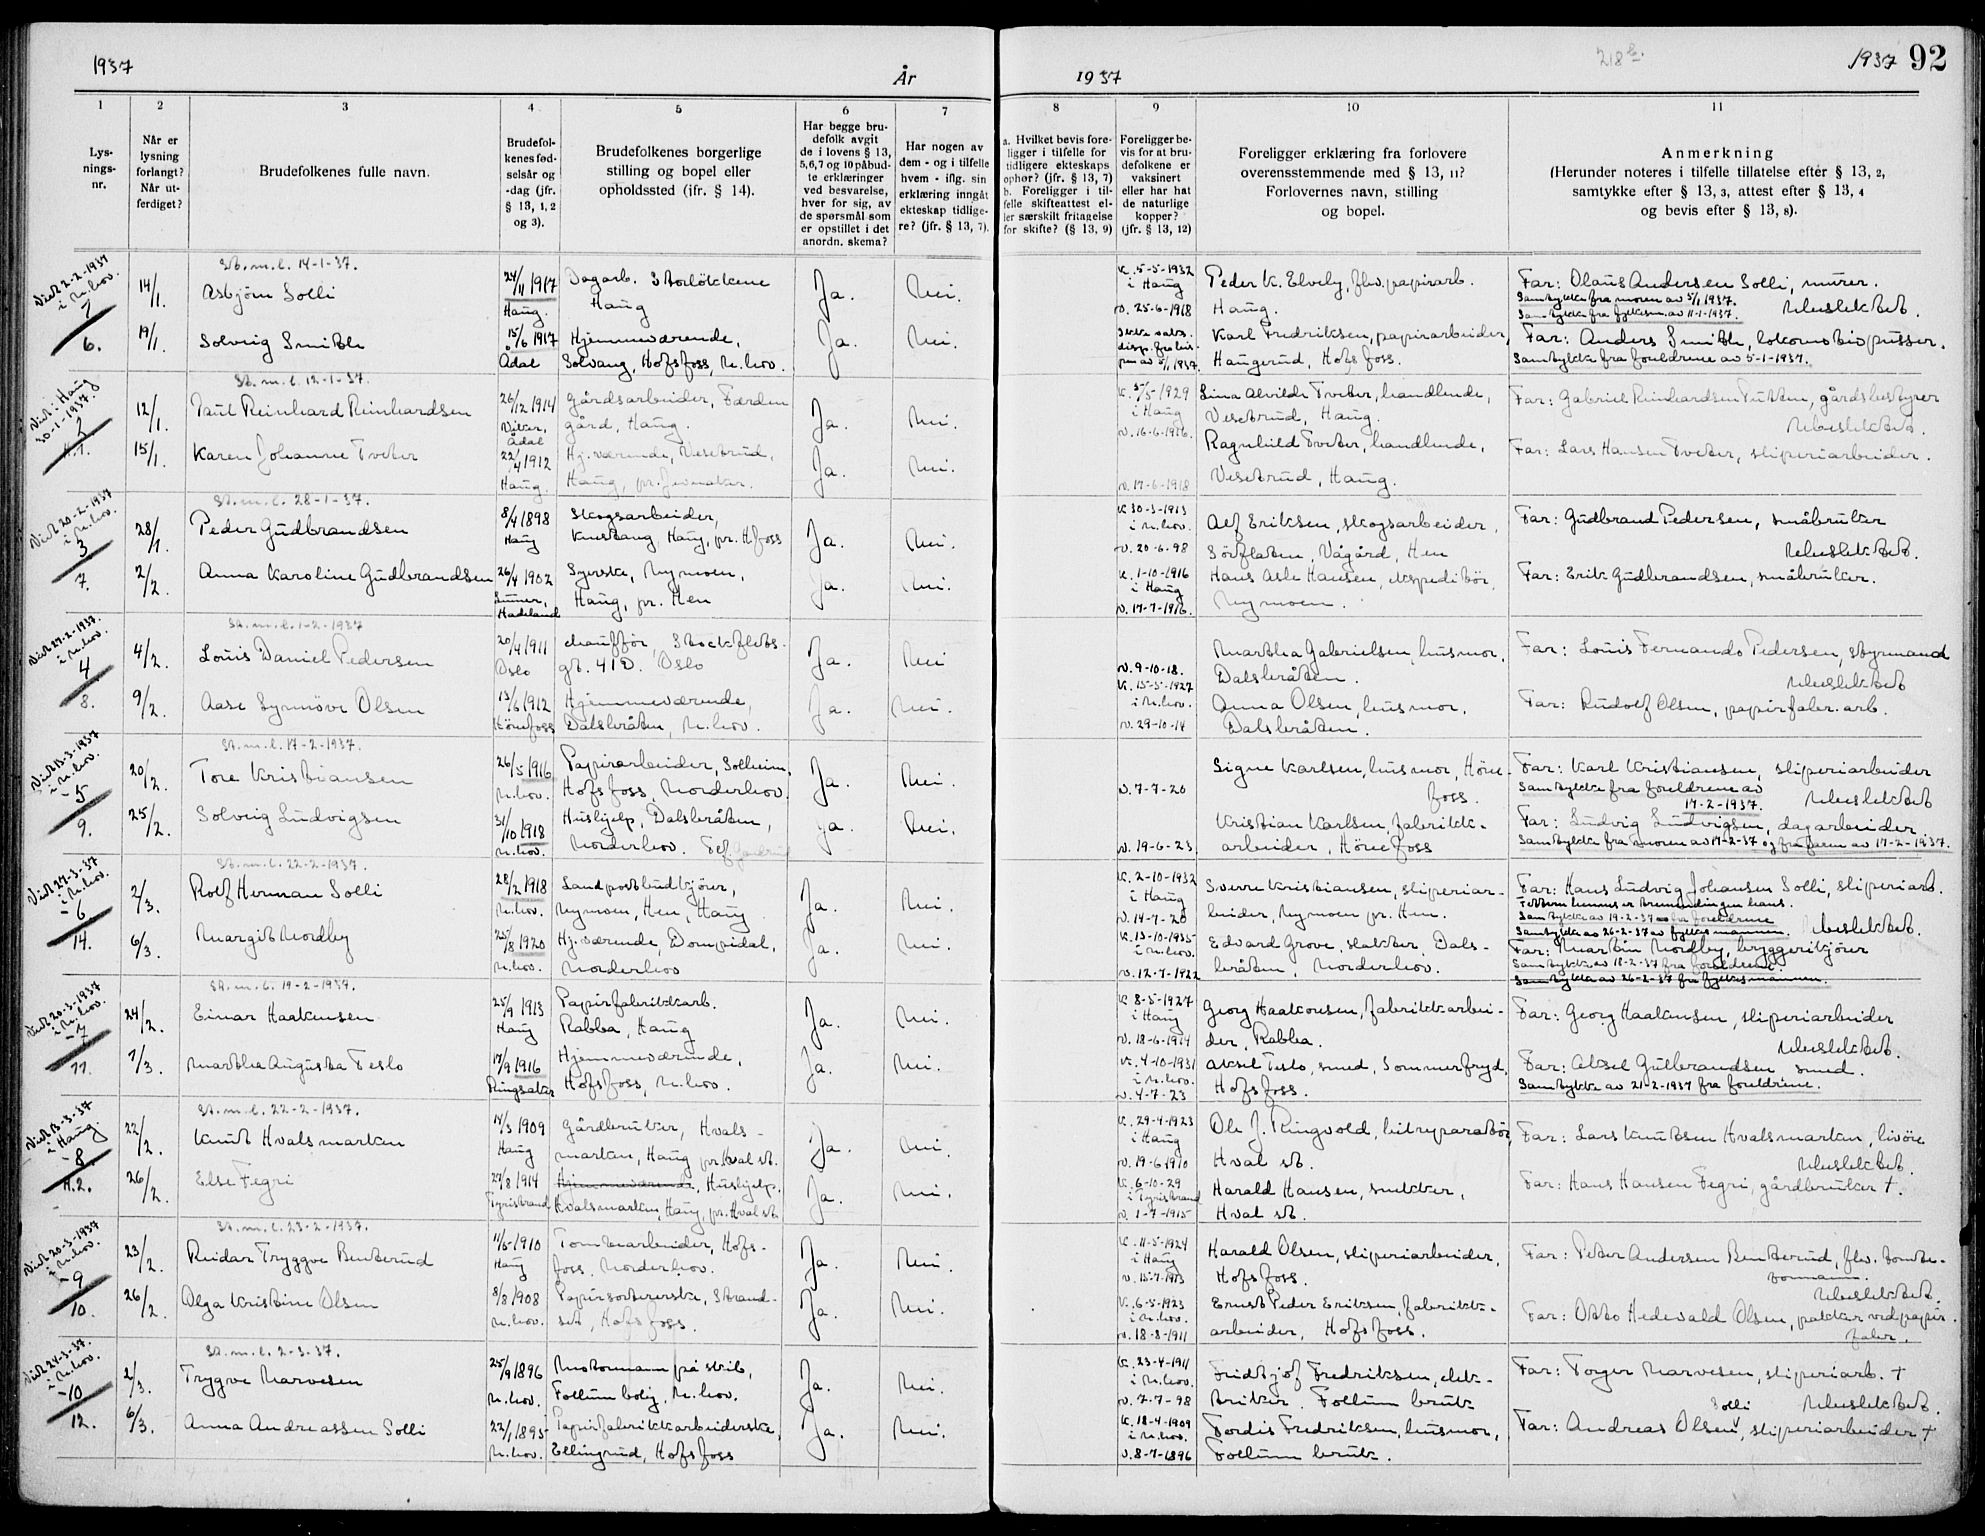 1937
År
1937
218 b.
1937 92
1
2
3
4
5
6
7
8
9
10
11
Lys-
nings-
nr.
Når er
lysning
forlangt?
Når ut-
ferdiget?
Brudefolkenes fulle navn.
Brudefol-
kenes fød-
selsår og
-dag (jfr.
§ 13, 1, 2
og 3).
Brudefolkenes borgerlige
stilling og bopel eller
opholdssted (jfr. § 14).
Har begge bru-
defolk avgit
de i lovens § 13,
5,6,7 og 10 påbud-
te erklæringer
ved besvarelse,
hver for sig, av
de spørsmål som
er opstillet i det
anordn. skema?
Har nogen av
dem - og i tilfelle
hvem - iflg. sin
erklæring inngåt
ekteskap tidlige-
re? (jfr. § 13, 7).
a. Hvilket bevis fore-
ligger i tilfelle for
tidligere ekteskaps
ophør? (jfr. § 13, 7)
b. Foreligger i til-
felle skifteattest el-
ler særskilt fritagelse
for skifte? (§ 13, 9)
Foreligger be-
vis for at bru-
defolkene er
vaksinert
eller har hat
de naturlige
kopper?
(jfr. § 13, 12)
Foreligger erklæring fra forlovere
overensstemmende med § 13, 11?
Forlovernes navn, stilling
og bopel.
Anmerkning
(Herunder noteres i tilfelle tillatelse efter § 13, 2,
samtykke efter § 13, 3, attest efter § 13, 4
og bevis efter § 13, 8).
Viet 2-2-1937
i N.hov.
1
6.
St. m. l. 14-1-37.
14/1.
Asbjørn Solli
24/11 1917
Haug.
Dagarb. Storløkkene
Haug
Ja.
Nei.
K. 5-5-1932
i Haug
v. 25-6-1918
Peder K. Elvely, flw. papirarb.
Haug.
Far: Olaus Andersen Solli, murer.
Samtykke fra moren av 5/1 1937.
Samtykke fra fylkesm. av 11-1-1937. Ubeslektet.
19/1.
Solveig Smith
15/6 1917
Ådal
Hjemmeværende,
Solvang, Hofsfoss, N.hov.
Ja.
Nei.
Ikke vaks.
pen av 5/1 1937.
Karl Fredriksen, papirarbeider,
Haugerud, Hofsfoss.
Far: Anders Smith, lokomotivpusser.
Samtykke fra foreldrene av 5-1-1937.
Viet i Haug
30-1-1937.
2
H.1.
St. m. l. 12-1-37.
12/1.
Paul Reinhard Reinhardsen
26/12 1914
Viker,
Ådal
Gårdsarbeider, Færden
gård, Haug.
Ja.
Nei.
K. 5/5-1929
i Haug
v. 16-6-1916.
Lina Alvilde Tveter, handlende,
Vesetrud, Haug.
Far: Gabriel Reinhardsen Putten, gårdsbestyrer
Ubeslektet.
15/1.
Karen Johanne Tveter
22/4 1912
Haug.
Hj. værende, Vesetrud,
Haug, pr. Jevnaker.
Ja.
Nei.
v. 17-6-1918
Ragnhild Tveter, handlende,
Vesetrud, Haug.
Far: Lars Hansen Tveter, sliperiarbeider.
Viet 20-2-1937
i N.hov.
3
7.
St. m. l. 28-1-37.
28/1.
Peder Gudbrandsen
8/4 1898
Haug
Skogsarbeider,
Knestang, Haug, pr. Hfoss
Ja.
Nei.
K. 30-3-1913
i N.hov.
v. 20-6-98
Alf Eriksen, skogsarbeider,
Sørflaten, Vågård, Hen
Far: Gudbrand Pedersen, småbruker
Ubeslektet.
2/2.
Anna Karoline Gudbrandsen
26/4 1902
Lunner,
Hadeland
Syerske, Nymoen,
Haug, pr. Hen
Ja.
Nei.
K. 1-10-1916
i Haug
v. 17-7-1916.
Hans Asle Hansen, ekspeditør,
Nymoen.
Far: Erik Gudbrandsen, småbruker.
Viet 27-2-1937.
i N.hov.
4
8.
St. m. l. 1-2-1937
4/2.
Louis Daniel Pedersen
20/4 1911
Oslo
chauffør, Stockflets-
gt. 41D. Oslo
Ja.
Nei
v. 9-10-18.
Marthea Gabrielsen, husmor,
Dalsbråten.
Far: Louis Fernando Pedersen, styrmand
Ubeslektet
9/2.
Aase Synnøve Olsen
13/6 1912
Hønefoss
Hjemmeværende,
Dalsbråten, N.hov.
Ja.
Nei.
K. 15-5-1927
i N.hov.
v. 29-10-14
Anna Olsen, husmor,
Dalsbråten.
Far: Rudolf Olsen, papirfabr. arb.
Viet 13-3-1937
i N.hov.
-5
9.
St. m. l. 17-2-1937.
20/2.
Tore Kristiansen
26/5 1916
N.hov.
Papirarbeider, Solheim,
Hofsfoss, Norderhov.
Ja.
Nei.
v. 7-7-20
Signe Karlsen, husmor, Høne-
foss.
Far: Karl Kristiansen, sliperiarbeider
Samtykke fra foreldrene av
17-2-1937. Ubeslektet
25/2.
Solveig Ludvigsen
31/10 1918
N.hov.
Hushjelp, Dalsbråten,
Norderhov.
Ja.
Nei.
v. 19-6-23.
Kristian Karlsen, fabrikk-
arbeider, Hønefoss
Far: Ludvig Ludvigsen, dagarbeider
Samtykke fra moren av 17-2-37 og fra faren av 17-2-1937.
Viet 27-3-37
i N.hov.
-6
14.
St. m. l. 22-2-1937.
2/3.
Rolf Herman Solli
28/2 1918
N.hov.
Landpostbudkjører,
Nymoen, Hen, Haug
Ja.
Nei.
K. 2-10-1932
i Haug
v. 14-7-20
Sverre Kristiansen, sliperiar-
beider, Nymoen pr. Hen.
Far: Hans Ludvig Johansen Solli, sliperiarb.
Fetteren hennes er tremenningen hans.
Samtykke av 19-2-37 fra foreldrene
Samtykke av 26-2-37 av fylkesmannen. Ubeslektet.
6/3.
Margit Nordby
25/8 1920
N.hov.
Hj. værende, Dompidal,
Norderhov
Ja.
Nei.
K. 13-10-1935
i N.hov.
v. 12-7-1922
Edvard Grove, slakter, Dals-
bråten, Norderhov.
Far: Martin Nordby, bryggerikjører
Samtykke av 18-2-37 fra foreldrene.
Samtykke av 26-2-37 fra fylkesmannen.
Viet 20-3-1937
i N.hov.
-7
11.
St. m. l. 19-2-1937.
24/2.
Einar Haakensen
25/9 1913
Haug
Papirfabrikkarb.
Rabba, Haug
Ja.
Nei.
K. 8-5-1927
i Haug
v. 18-6-1914
Georg Haakonsen, fabrikkarbei-
der, Rabba.
Far: Georg Haakensen, sliperiarbeider
Ubeslektet.
1/3.
Marthea Augusta Teslo
17/9 1916
Ringsaker
Hjemmeværende,
Hofsfoss, N.hov.
Ja.
Nei.
K. 4-10-1931
i N.hov.
v. 4-7-23
Aksel Teslo, smed, Sommerfryd,
Hofsfoss.
Far: Aksel Gulbrandsen smed.
Samtykke av 21-2-1937 fra foreldrene.
Viet 13-3-37
i Haug.
-8
H.2.
St. m. l. 22-2-1937.
22/2.
Knut Hvalsmarken
14/3 1909
Haug
Gårdbruker, Hvals-
marken, Haug pr. Hval st.
Ja.
Nei.
K. 29-4-1923
i Haug
v. 19-6 1910
Ole J. Ringvold, bilreparatør,
Hval st.
Far: Lars Knutsen Hvalsmarken, livøre
Ubeslektet.
26/2.
Else Fegri
27/8 1914
Tyristrand
Hjemmeværende, Hushjelp.
Hvalsmarken, Haug, pr. Hval st.
Ja.
Nei.
K. 6-10-29
i Tyristrand
v. 1-7-1915
Harald Hansen, snekker,
Hval st.
Far: Hans Hansen Fegri, gårdbruker †.
Viet 20-3-1937
i N.hov.
-9
10.
St. m. l. 23-2-1937.
23/2.
Reidar Tryggve Benterud
11/5-1910
Haug
Tomtearbeider, Hofs-
foss. Norderhov.
Ja.
Nei.
K. 11-5-1924
i Haug
v. 15-7-1913
Harald Olsen, sliperiarbeider,
Hofsfoss.
Far: Peter Andersen Benterud, flw. tomte-
formann.
Ubeslektet.
26/2.
Olga Kristine Olsen
8/8 1908
N.hov.
Papirsortererske, Strand-
set, Hofsfoss.
Ja.
Nei.
K. 6-5-1923
i N.hov.
v. 18-8-1911
Ernst Peder Eriksen, fabrikk-
arbeider, Hofsfoss.
Far: Otto Hedevald Olsen, pakker ved papir-
fabr.
Viet 24-3-37.
i N.hov.
-10
12.
St. m. l. 2-3-37.
2/3.
Trygve Narvesen
25/9 1896
N.hov.
Motormann på skib,
Follum bolig, N.hov.
Ja.
Nei.
K. 23-4-1911
i N.hov.
v. 7-7-98
Fridtjof Fredriksen, elek-
triker. Follum bruk
Far: Torger Narvesen, sliperiarb. †
Ubeslektet.
6/3.
Anna Andreassen Solli
22/1 1895
N.hov.
Papirfabrikkarbeiderske,
Ellingrud, Hofsfoss
Ja.
Nei.
K. 18-4-1909
i N.hov.
v. 8-7-1896
Tordis Fredriksen, husmor,
Follum bruk.
Solli
Far: Andreas Olsen, sliperiarbeider †